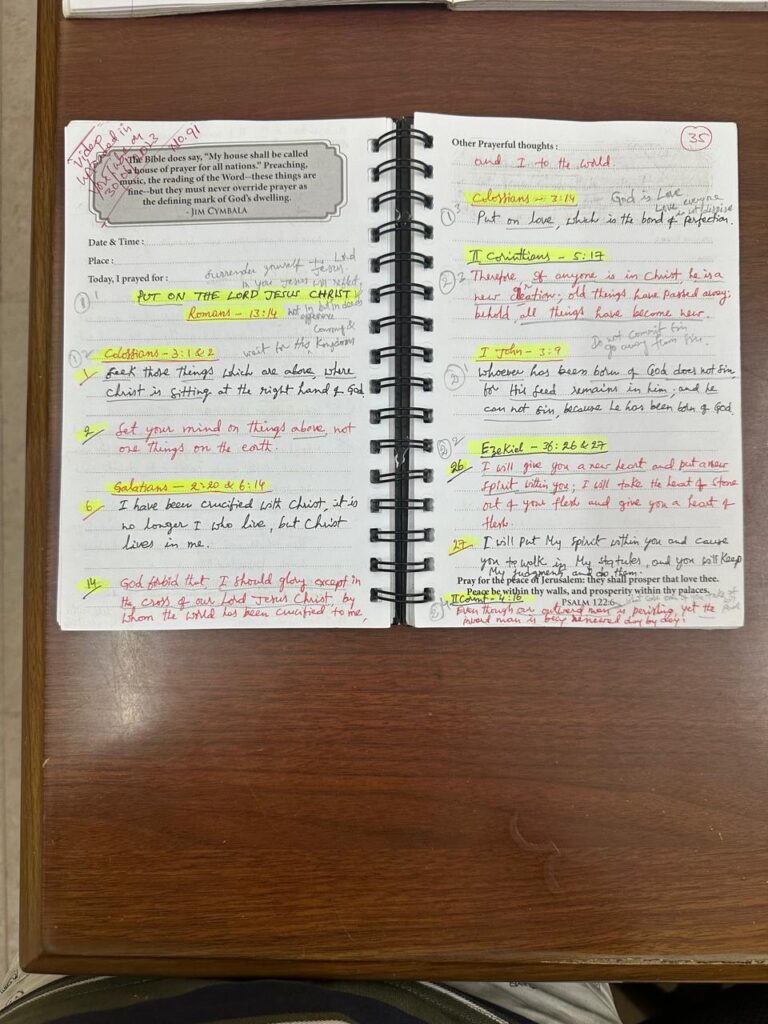 Video
uploaded in
30.04.2023
The Bible does say, "My house shall be called
a house of prayer for all nations." Preaching,
music, the reading of the Word--these things are
fine--but they must never override prayer as
the defining mark of God's dwelling.
- JIM CYMBALA
Date & Time :
Place :
Today, I prayed for :
Surrender yourself to Lord
Jesus
in you Jesus will reflect,
① 1
PUT ON THE LORD JESUS CHRIST
Romans - 13:14
not in but in deeds
Coming &
wait for His Kingdom
① 2 Colossians - 3:1 & 2
1 Seek those things which are above, where
Christ is sitting at the right hand of God
2 Set your mind on things above, not
one things on the earth.
Galatians - 2:20 & 6:14
6 I have been crucified with Christ, it is
no longer I who live, but Christ
lives in me.
14 God forbid that I should glory except in
the cross of our Lord Jesus Christ, by
whom the world has been crucified to me,
Other Prayerful thoughts :
35
and I to the world.
Colossians - 3:14 God is Love
Love everyone
① 3 Put on love, which is the bond of perfection.
II Corinthians - 5:17
② 3 Therefore, if anyone is in Christ, he is a
new creation; old things have passed away;
behold, all things have become new.
I John - 3:9
Do not commit Sin
go away from Sin.
② 1 Whoever has been born of God does not sin,
for His seed remains in him; and he
can not sin, because he has been born of God.
② 2 Ezekiel - 36:26 & 27
26 I will give you a new heart and put a new
spirit within you; I will take the heart of stone
out of your flesh and give you a heart of
flesh.
27 I will put My Spirit within you and cause
you to walk in My statutes, and you will keep
My judgments and do them.
Pray for the peace of Jerusalem: they shall prosper that love thee.
Peace be within thy walls, and prosperity within thy palaces.
PSALM 122:6
II Corint - 4:16
Even though our outward man is perishing, yet the
inward man is being renewed day by day.